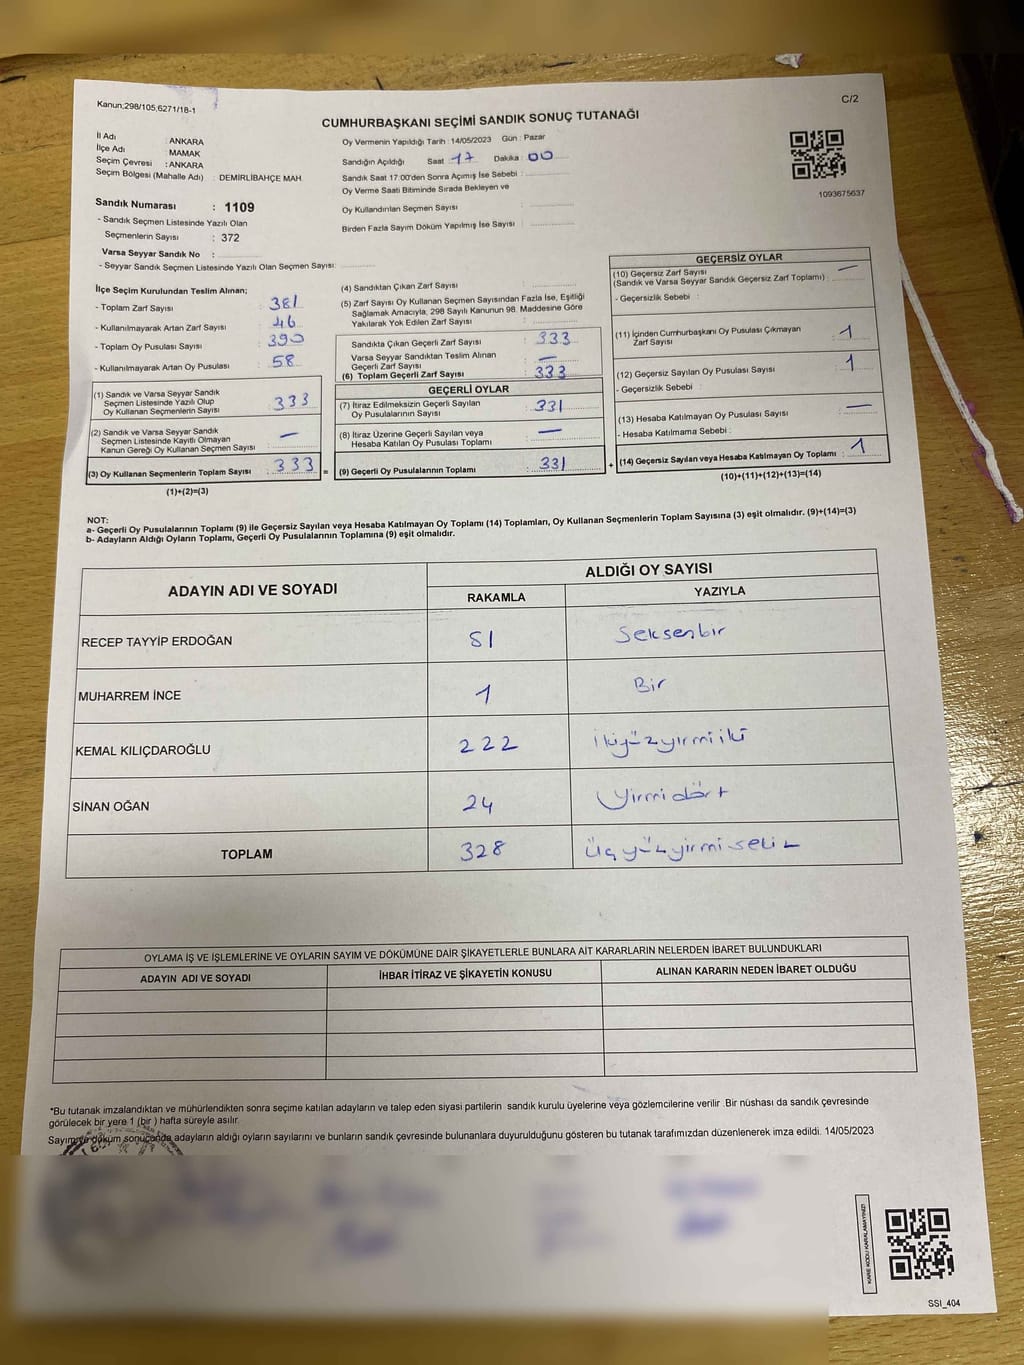 Kanun;298/105,6271/18-1
C/2
CUMHURBAŞKANI SEÇİMİ SANDIK SONUÇ TUTANAĞI
İl Adı : ANKARA
İlçe Adı MAMAK
Seçim Çevresi : ANKARA
Seçim Bölgesi (Mahalle Adı) : DEMİRLİBAHÇE MAH.
Sandık Numarası : 1109
- Sandık Seçmen Listesinde Yazılı Olan
Seçmenlerin Sayısı : 372
Varsa Seyyar Sandık No :
- Seyyar Sandık Seçmen Listesinde Yazılı Olan Seçmen Sayısı:
Oy Vermenin Yapıldığı Tarih : 14/05/2023 Gün : Pazar
Sandığın Açıldığı Saat 17 Dakika 00
Sandık Saat 17:00'den Sonra Açımış İse Sebebi :
Oy Verme Saati Bitiminde Sırada Bekleyen ve
Oy Kullandırılan Seçmen Sayısı :
Birden Fazla Sayım Döküm Yapılmış İse Sayısı :
1093675637
İlçe Seçim Kurulundan Teslim Alınan;
- Toplam Zarf Sayısı : 381
- Kullanılmayarak Artan Zarf Sayısı : 46
- Toplam Oy Pusulası Sayısı : 390
- Kullanılmayarak Artan Oy Pusulası : 58
(1) Sandık ve Varsa Seyyar Sandık
Seçmen Listesinde Yazılı Olup
Oy Kullanan Seçmenlerin Sayısı : 333
(2) Sandık ve Varsa Seyyar Sandık
Seçmen Listesinde Kayıtlı Olmayan
Kanun Gereği Oy Kullanan Seçmen Sayısı : —
(3) Oy Kullanan Seçmenlerin Toplam Sayısı : 333 =
(1)+(2)=(3)
(4) Sandıktan Çıkan Zarf Sayısı :
(5) Zarf Sayısı Oy Kullanan Seçmen Sayısından Fazla İse, Eşitliği
Sağlamak Amacıyla, 298 Sayılı Kanunun 98. Maddesine Göre
Yakılarak Yok Edilen Zarf Sayısı :
Sandıkta Çıkan Geçerli Zarf Sayısı : 333
Varsa Seyyar Sandıktan Teslim Alınan
Geçerli Zarf Sayısı : —
(6) Toplam Geçerli Zarf Sayısı : 333
GEÇERLİ OYLAR
(7) İtiraz Edilmeksizin Geçerli Sayılan
Oy Pusulalarının Sayısı : 331
(8) İtiraz Üzerine Geçerli Sayılan veya
Hesaba Katılan Oy Pusulası Toplamı : —
(9) Geçerli Oy Pusulalarının Toplamı : 331 +
GEÇERSİZ OYLAR
(10) Geçersiz Zarf Sayısı
(Sandık ve Varsa Seyyar Sandık Geçersiz Zarf Toplamı) : —
- Geçersizlik Sebebi :
(11) İçinden Cumhurbaşkanı Oy Pusulası Çıkmayan
Zarf Sayısı : 1
(12) Geçersiz Sayılan Oy Pusulası Sayısı : 1
- Geçersizlik Sebebi :
(13) Hesaba Katılmayan Oy Pusulası Sayısı : —
- Hesaba Katılmama Sebebi :
(14) Geçersiz Sayılan veya Hesaba Katılmayan Oy Toplamı : 1
(10)+(11)+(12)+(13)=(14)
NOT:
a- Geçerli Oy Pusulalarının Toplamı (9) ile Geçersiz Sayılan veya Hesaba Katılmayan Oy Toplamı (14) Toplamları, Oy Kullanan Seçmenlerin Toplam Sayısına (3) eşit olmalıdır. (9)+(14)=(3)
b- Adayların Aldığı Oyların Toplamı, Geçerli Oy Pusulalarının Toplamına (9) eşit olmalıdır.
ADAYIN ADI VE SOYADI
ALDIĞI OY SAYISI
RAKAMLA YAZIYLA
RECEP TAYYİP ERDOĞAN 81 Seksenbir
MUHARREM İNCE 1 Bir
KEMAL KILIÇDAROĞLU 222 ikiyüzyirmiiki
SİNAN OĞAN 24 Yirmidört
TOPLAM 328 Üçyüzyirmisekiz
OYLAMA İŞ VE İŞLEMLERİNE VE OYLARIN SAYIM VE DÖKÜMÜNE DAİR ŞİKAYETLERLE BUNLARA AİT KARARLARIN NELERDEN İBARET BULUNDUKLARI
ADAYIN ADI VE SOYADI İHBAR İTİRAZ VE ŞİKAYETİN KONUSU ALINAN KARARIN NEDEN İBARET OLDUĞU
*Bu tutanak imzalandıktan ve mühürlendikten sonra seçime katılan adayların ve talep eden siyasi partilerin sandık kurulu üyelerine veya gözlemcilerine verilir .Bir nüshası da sandık çevresinde
görülecek bir yere 1 (bir ) hafta süreyle asılır.
Sayım ve döküm sonucunda adayların aldığı oyların sayılarını ve bunların sandık çevresinde bulunanlara duyurulduğunu gösteren bu tutanak tarafımızdan düzenlenerek imza edildi. 14/05/2023
KARE KODU KARALAMAYINIZ!
SSI_404